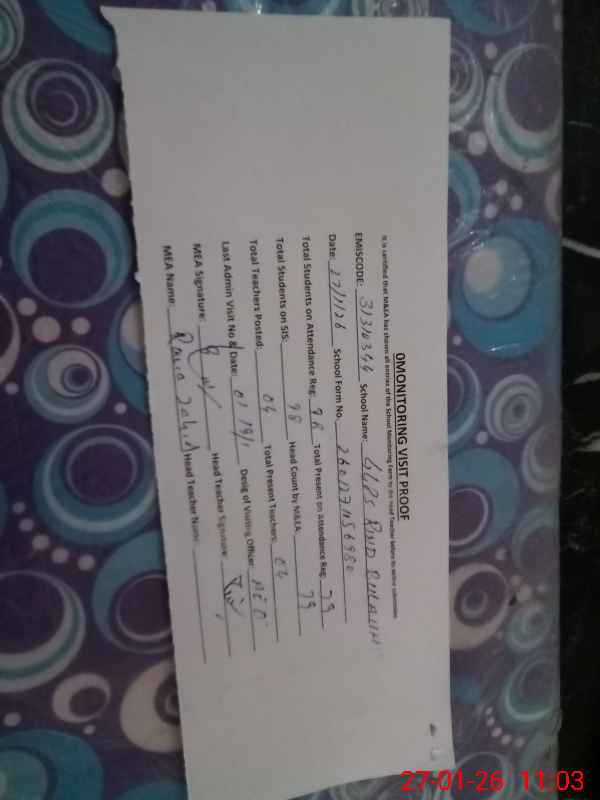 OMONITORING VISIT PROOF
It is certified that M&EA has shown all entries of the School Monitoring Form to the Head Teacher before its online submission.
EMISCODE: School Name: GGPS RIND
Date: 27/1/26 School Form No.
Total Students on Attendance Reg: Total Present on Attendance Reg: 79
Total Students on SIS: 98 Head Count by M&EA: 79
Total Teachers Posted: 04 Total Present Teachers: 04
Last Admin Visit No & Date: 01 19/1 Desig of Visiting Officer: AEO
MEA Signature: Head Teacher Signature:
MEA Name: Head Teacher Name:
27-01-26 11:03